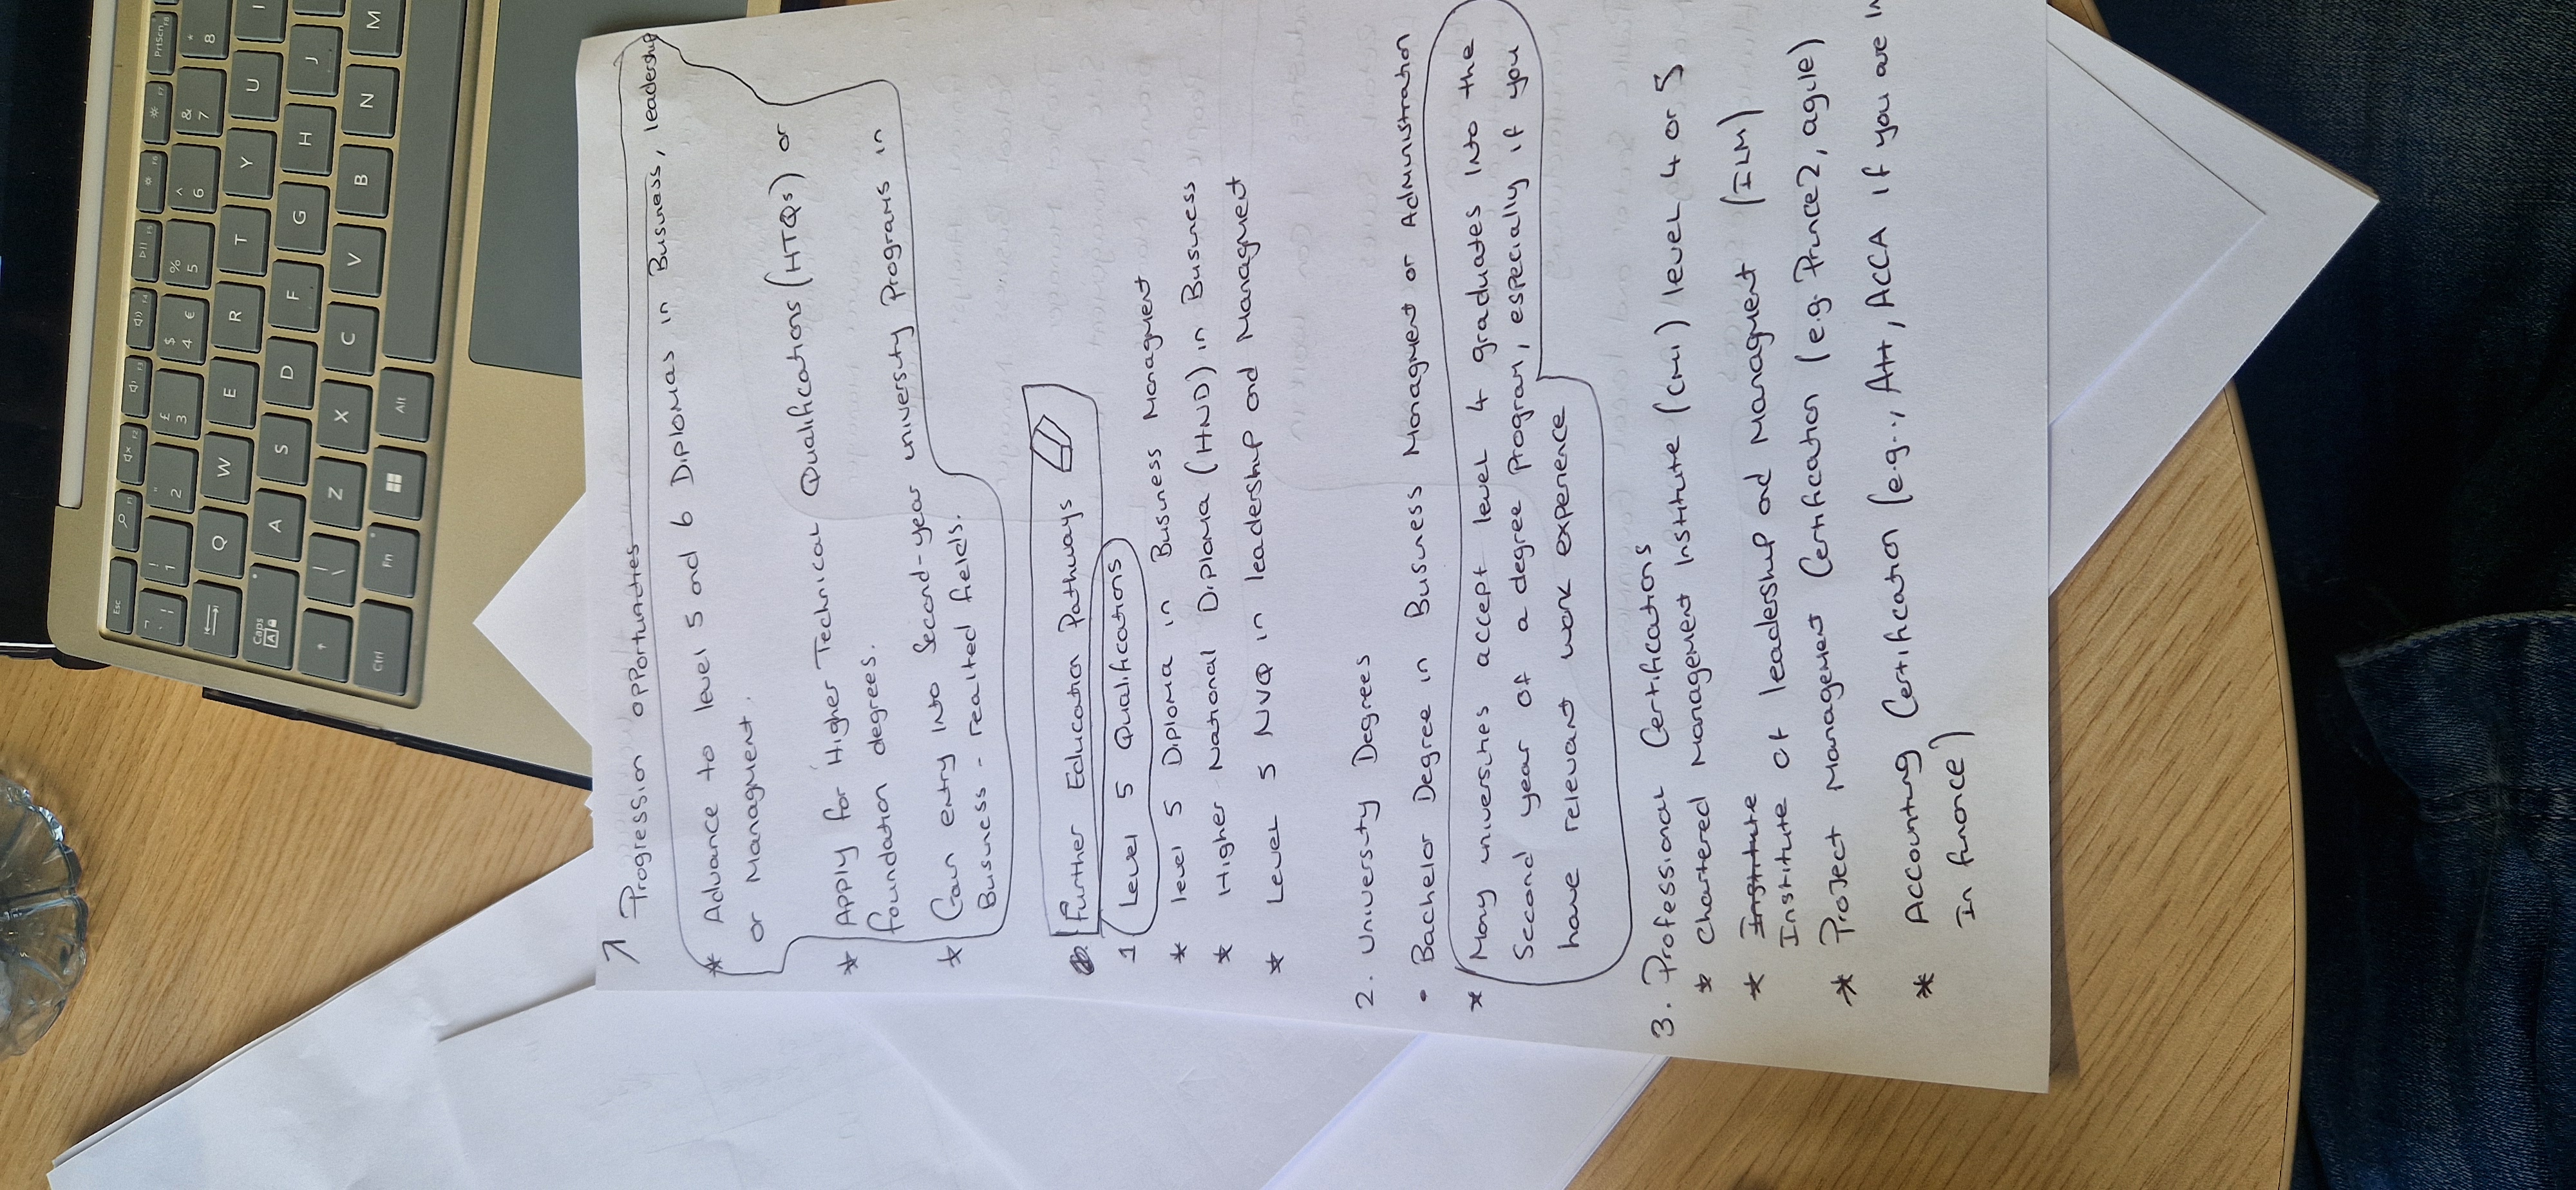 Progression opportunities
* Advance to level 5 and 6 Diplomas in Business, leadership
or Managment.
* Apply for Higher Technical Qualifications (HTQs) or
foundation degrees.
* Gain entry into Second-year university Programs in
Business - realted fields.
Further Education Pathways
1 Level 5 Qualifications
* level 5 Diploma in Business Managment
* Higher National Diploma (HND) in Business
* Level 5 NVQ in leadership and Managment
2. University Degrees
• Bachelor Degree in Business Managment or Administration
* Many universities accept level 4 graduates into the
Second year of a degree Program, especially if you
have relevant work experience
3. Professional Certifications
* Chartered Management Institute (CMI) level 4 or 5
* Institute
Institute of leadership and Managment (ILM)
* Project Management Certification (e.g. Prince2, agile)
* Accounting Certification (e.g.., ACCA if you are in
In finance)
Esc
F1
F2
F3
F4
F5
F6
F7
PrtScn F8
! 1
" 2
£ 3
$ 4 €
% 5
^ 6
& 7
* 8
Q W E R T Y U I
Caps A S D F G H J
\ Z X C V B N M
Ctrl Fn Alt